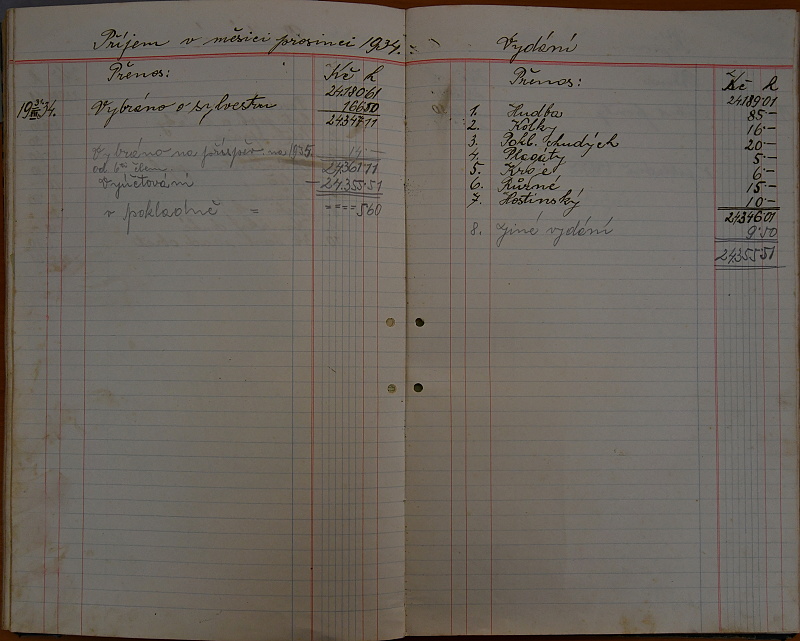 Příjem v měsíci prosinci 1934.
Přenos:
Kč h
24180 61
19 31/XII 34. Vybráno o sylvestru 166 50
24347 11
Vybráno na příspěv. na 1935. 14 -
od 6ti člen. 24361 11
Vyúčtování - 24355 51
v pokladně = = = = = 5 60
Vydání
Přenos:
Kč h
24189 01
1. Hudba 85 -
2. Kolky 16 -
3. Pokl. chudých 20 -
4. Plagáty 5 -
5. 6 -
6. Různé 15 -
7. Hostinský 10 -
24346 01
8. Jiné vydání 9 50
24355 51